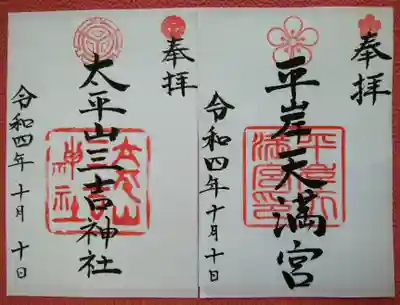 奉拝
平岸天満宮
令和四年十月十日
奉拝
太平山三吉神社
令和四年十月十日